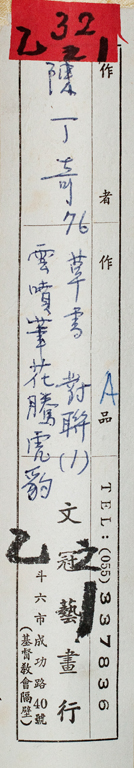 32
乙 之1
作者
陳丁奇
作品
76 草書 對聯 (1)
A
雲噴筆花騰虎豹
TEL:(055)337836
文冠藝畫行
乙 之1
斗六市成功路40號
(基督教會隔壁)